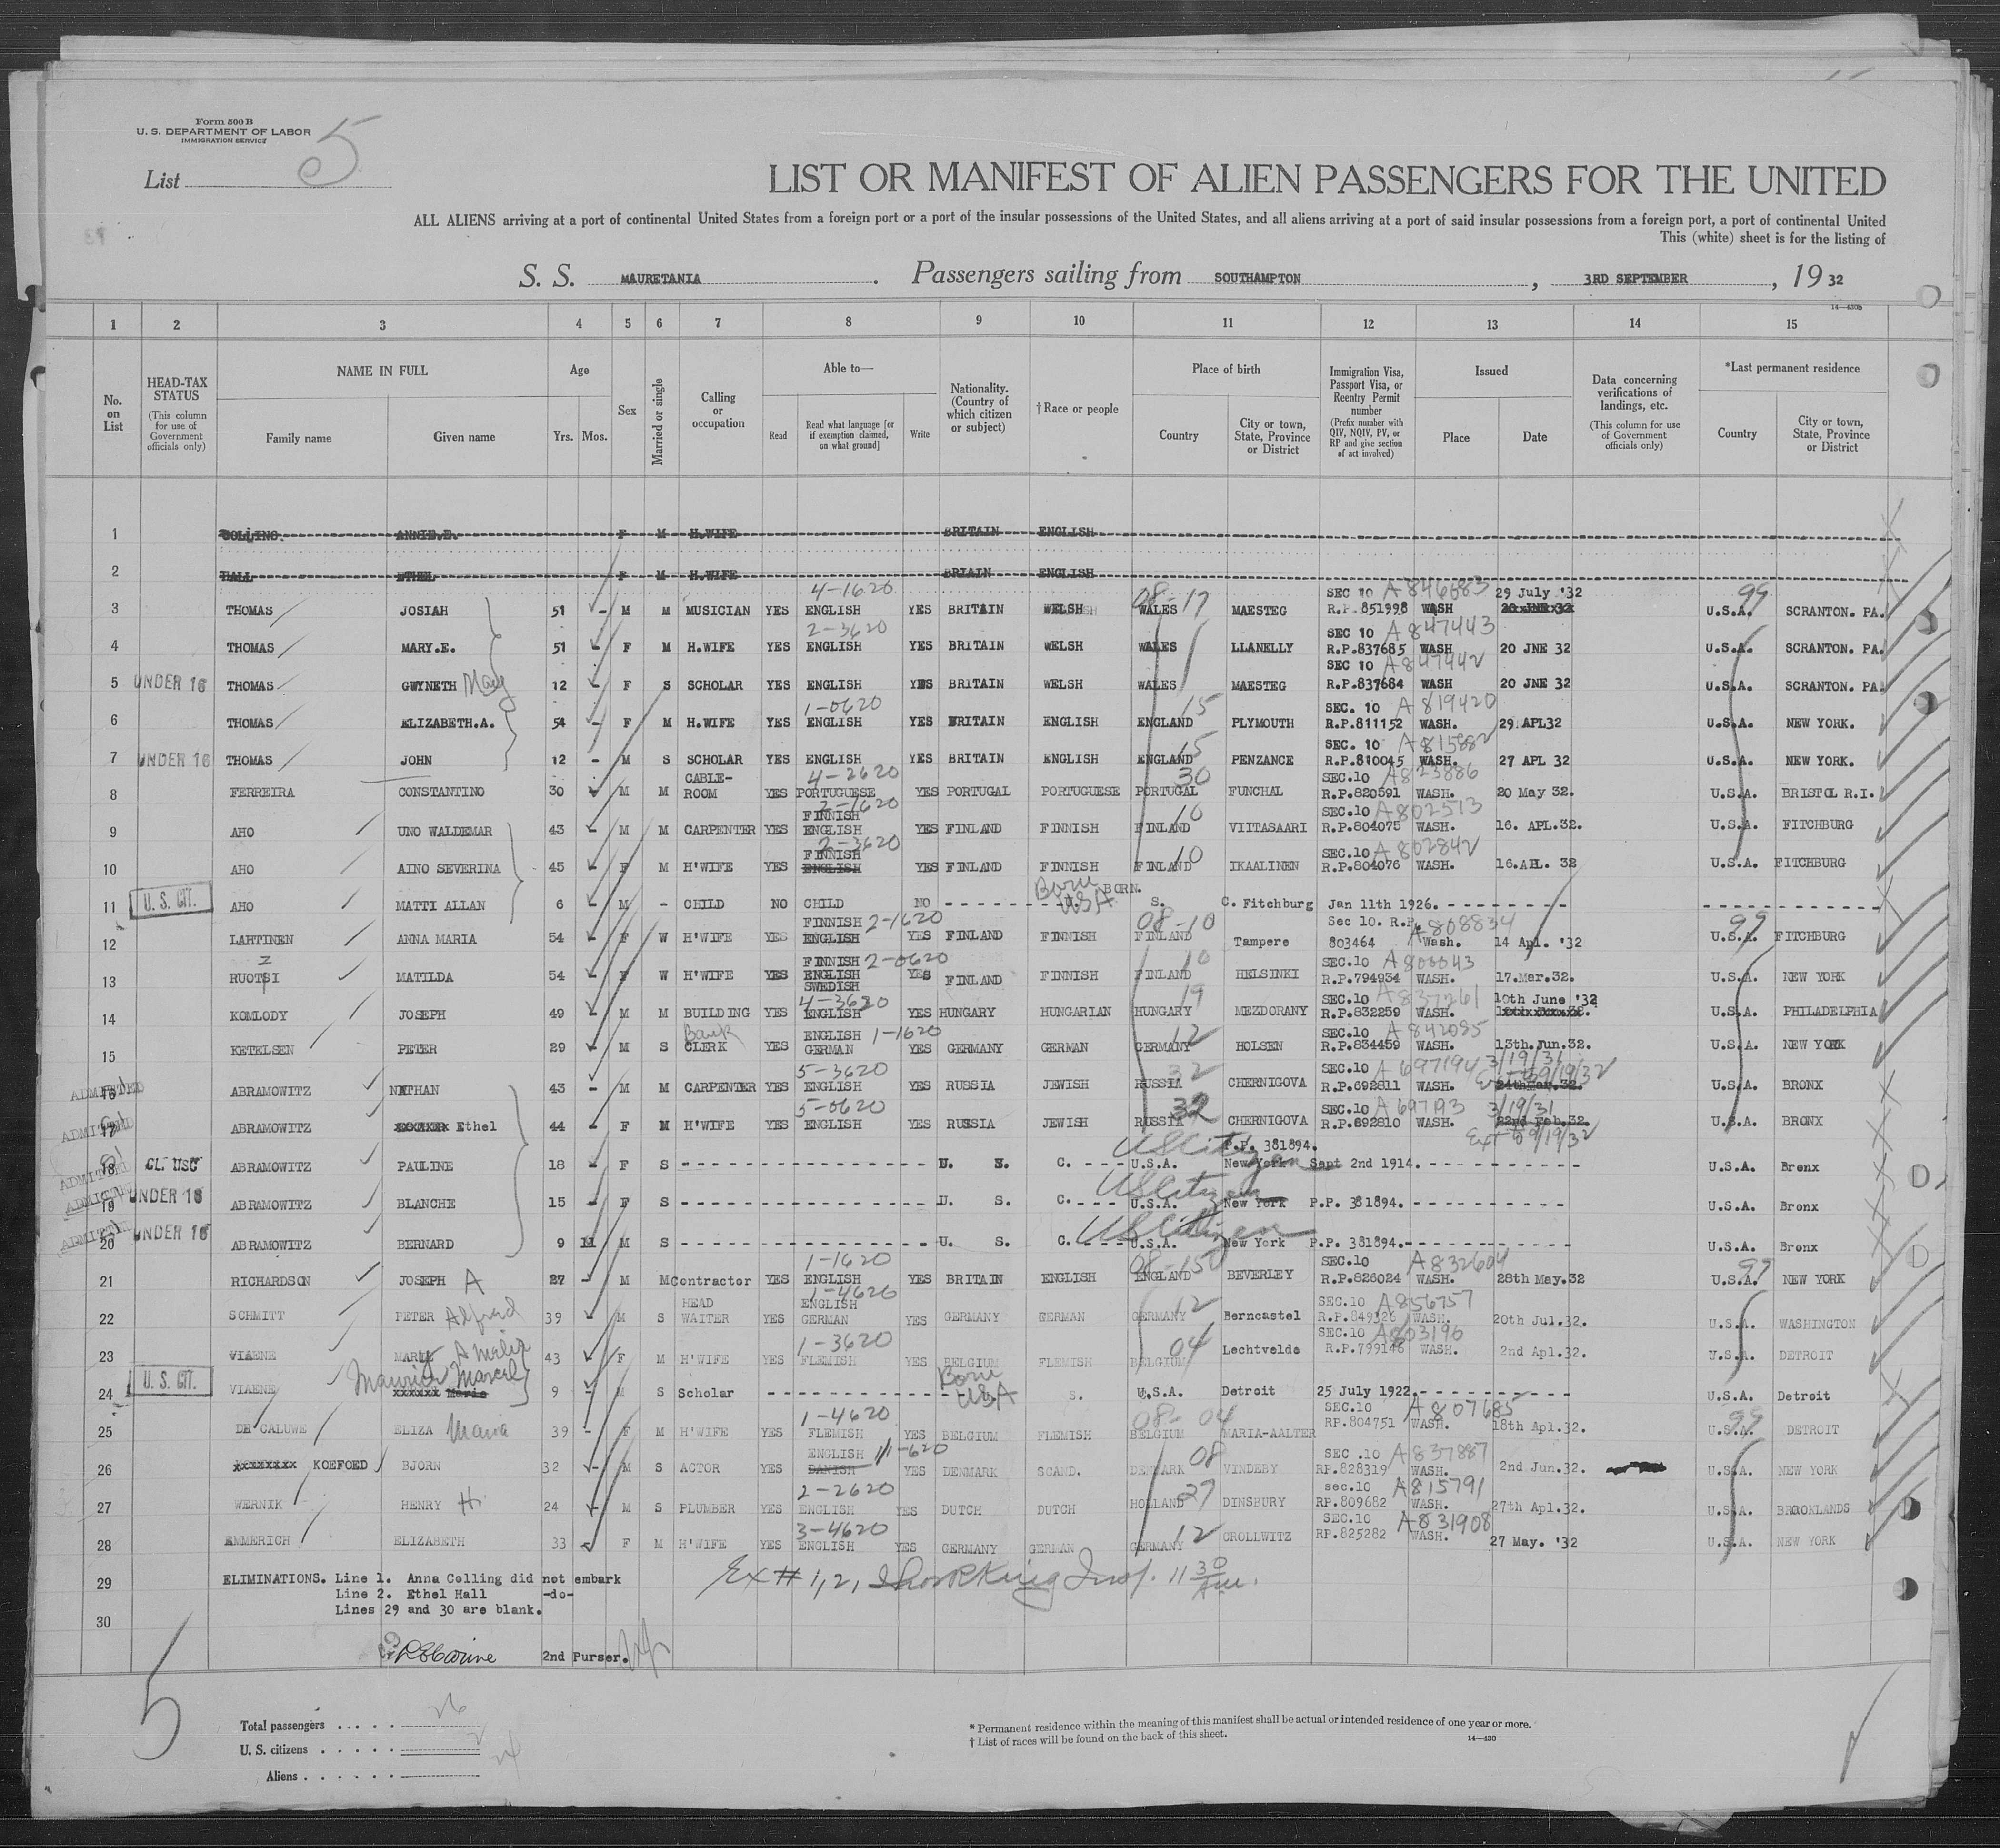 Form 500 B
U. S. DEPARTMENT OF LABOR
IMMIGRATION SERVICE
List 5
LIST OR MANIFEST OF ALIEN PASSENGERS FOR THE UNITED
ALL ALIENS arriving at a port of continental United States from a foreign port or a port of the insular possessions of the United States, and all aliens arriving at a port of said insular possessions from a foreign port, a port of continental United
This (white) sheet is for the listing of
S. S. MAURETANIA. Passengers sailing from SOUTHAMPTON, 3RD SEPTEMBER, 19 32
14—430b
1 2 3 4 5 6 7 8 9 10 11 12 13 14 15
No. on List
HEAD-TAX STATUS (This column for use of Government officials only)
NAME IN FULL Family name Given name
Age Yrs. Mos.
Sex
Married or single
Calling or occupation
Able to— Read Read what language [or if exemption claimed, on what ground] Write
Nationality. (Country of which citizen or subject)
† Race or people
Place of birth Country City or town, State, Province or District
Immigration Visa, Passport Visa, or Reentry Permit number (Prefix number with QIV, NQIV, PV, or RP and give section of act involved)
Issued Place Date
Data concerning verifications of landings, etc. (This column for use of Government officials only)
*Last permanent residence Country City or town, State, Province or District
1 ANNIE.E. F M H.WIFE BRITAIN ENGLISH
2 HALL ETHEL F M H.WIFE BRIAIN ENGLISH
3 THOMAS JOSIAH 51 - M M MUSICIAN YES 4-1620 ENGLISH YES BRITAIN WELSH 08-17 WALES MAESTEG SEC 10 A846683 R.P.851998 WASH 29 July '32 99 U.S.A. SCRANTON. PA.
4 THOMAS MARY.E. 51 - F M H.WIFE YES 2-3620 ENGLISH YES BRITAIN WELSH WALES LLANELLY SEC 10 A847443 R.P.837685 WASH 20 JNE 32 U.S.A. SCRANTON. PA.
5 UNDER 16 THOMAS GWYNETH Mary 12 - F S SCHOLAR YES ENGLISH YES BRITAIN WELSH WALES MAESTEG SEC 10 A847442 R.P.837684 WASH 20 JNE 32 U.S.A. SCRANTON. PA.
6 THOMAS ELIZABETH.A. 54 - F M H.WIFE YES 1-0620 ENGLISH YES BRITAIN ENGLISH ENGLAND 15 PLYMOUTH SEC. 10 A819420 R.P.811152 WASH. 29 APL32 U.S.A. NEW YORK.
7 UNDER 16 THOMAS JOHN 12 - M S SCHOLAR YES ENGLISH YES BRITAIN ENGLISH ENGLAND 15 PENZANCE SEC. 10 A815882 R.P.810045 WASH. 27 APL 32 U.S.A. NEW YORK.
8 FERREIRA CONSTANTINO 30 - M M CABLE-ROOM YES 4-2620 PORTUGUESE YES PORTUGAL PORTUGUESE PORTUGAL 30 FUNCHAL SEC.10 A823886 R.P.820591 WASH. 20 May 32. U.S.A. BRISTOL R.I.
9 AHO UNO WALDEMAR 43 - M M CARPENTER YES 2-1620 FINNISH ENGLISH YES FINLAND FINNISH FINLAND 10 VIITASAARI SEC.10 A802513 R.P.804075 WASH. 16. APL.32. U.S.A. FITCHBURG
10 AHO AINO SEVERINA 45 - F M H'WIFE YES 2-3620 FINNISH ENGLISH YES FINLAND FINNISH FINLAND 10 IKAALINEN SEC.10 A802842 R.P.804076 WASH. U.S.A. FITCHBURG
11 U. S. CIT. AHO MATTI ALLAN 6 - M - CHILD NO CHILD NO Born USA BORN. S. C. Fitchburg Jan 11th 1926.
12 LAHTINEN ANNA MARIA 54 - F W H'WIFE YES FINNISH 2-1620 ENGLISH YES FINLAND FINNISH 08-10 FINLAND Tampere Sec 10. R.P. A808834 803464 Wash. 14 Apl. '32 99 U.S.A. FITCHBURG
13 RUOTSI MATILDA 54 - F W H'WIFE YES FINNISH 2-0620 ENGLISH SWEDISH YES FINLAND FINNISH FINLAND 10 HELSINKI SEC.10 A800043 R.P.794934 WASH. 17.Mar.32. U.S.A. NEW YORK
14 KOMLODY JOSEPH 49 - M M BUILDING YES 4-3620 ENGLISH YES HUNGARY HUNGARIAN HUNGARY 19 MEZDORANY SEC.10 A837261 R.P.832259 WASH. 10th June '32 U.S.A. PHILADELPHIA
15 KETELSEN PETER 29 - M S Bank CLERK YES ENGLISH 1-1620 GERMAN YES GERMANY GERMAN GERMANY 12 HOLSEN SEC.10 A842085 R.P.834459 WASH. 13th.Jun.32. U.S.A. NEW YORK
ADMITTED 16 ABRAMOWITZ NATHAN 43 - M M CARPENTER YES 5-3620 ENGLISH YES RUSSIA JEWISH RUSSIA 32 CHERNIGOVA SEC.10 A697194 R.P.692811 WASH. 3/19/31 Ext to 9/19/32 U.S.A. BRONX
ADMITTED 17 ABRAMOWITZ Ethel 44 - F M H'WIFE YES 5-0620 ENGLISH YES RUSSIA JEWISH RUSSIA 32 CHERNIGOVA SEC.10 A697193 R.P.692810 WASH. 3/19/31 22nd Feb.32 Ext to 9/19/32 U.S.A. BRONX
ADMITTED 18 CL. USC ABRAMOWITZ PAULINE 18 - F S U. S. C. US Citizen U.S.A. P.P. 381894. New York Sept 2nd 1914. U.S.A. Bronx
ADMITTED 19 UNDER 16 ABRAMOWITZ BLANCHE 15 - F S U. S. C. US Citizen U.S.A. New York P.P. 381894. U.S.A. Bronx
ADMITTED 20 UNDER 16 ABRAMOWITZ BERNARD 9 M M S U. S. C. US Citizen U.S.A. New York P.P. 381894. U.S.A. Bronx
21 RICHARDSON JOSEPH A 27 - M M Contractor YES 1-1620 ENGLISH YES BRITAIN ENGLISH 08-15 ENGLAND BEVERLEY SEC.10 A832604 R.P.826024 WASH. 28th May.32 99 U.S.A. NEW YORK
22 SCHMITT PETER Alfred 39 - M S HEAD WAITER YES 1-4620 ENGLISH GERMAN YES GERMANY GERMAN GERMANY 12 Berncastel SEC.10 A856757 R.P.849326 WASH. 20th Jul.32. U.S.A. WASHINGTON
23 VIAENE MARIE Amelia 43 - F M H'WIFE YES 1-3620 FLEMISH YES BELGIUM FLEMISH BELGIUM 04 Lechtvelde SEC.10 A803196 R.P.799146 WASH. 2nd Apl.32. U.S.A. DETROIT
24 U. S. CIT. VIAENE Maurice Marcel Marie 9 - M S Scholar Born USA S. U.S.A. Detroit 25 July 1922. U.S.A. Detroit
25 DE CALUWE ELIZA Maria 39 - F M H'WIFE YES 1-4620 FLEMISH YES BELGIUM FLEMISH 08-04 BELGIUM MARIA-AALTER SEC.10 A807685 RP.804751 WASH. 18th Apl.32. 99 U.S.A. DETROIT
26 KOEFOED BJORN 32 - M S ACTOR YES ENGLISH DANISH YES DENMARK SCAND. DENMARK 08 VINDEBY SEC .10 A837887 RP.828319 WASH. 2nd Jun.32. U.S.A. NEW YORK
27 WERNIK HENRY H. 24 - M S PLUMBER YES 2-2620 ENGLISH YES DUTCH DUTCH HOLLAND 27 DINSBURY sec.10 A815791 RP.809682 WASH. 27th Apl.32. U.S.A. BROOKLANDS
28 EMMERICH ELIZABETH 33 - F M H'WIFE YES 3-4620 ENGLISH YES GERMANY GERMAN GERMANY 12 CROLLWITZ SEC.10 A831908 RP.825282 WASH. 27 May. '32 U.S.A. NEW YORK
29 ELIMINATIONS. Line 1. Anna Colling did not embark
Line 2. Ethel Hall -do-
Lines 29 and 30 are blank.
Ex # 1, 2, King Insp. 11 30 AM.
30
2nd Purser.
5
Total passengers 26
U. S. citizens 2
Aliens 24
* Permanent residence within the meaning of this manifest shall be actual or intended residence of one year or more.
† List of races will be found on the back of this sheet.
14—430